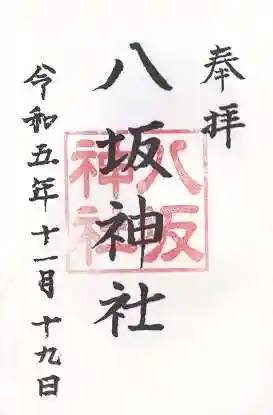 奉拝
八坂神社
八坂神社
令和五年十一月十九日